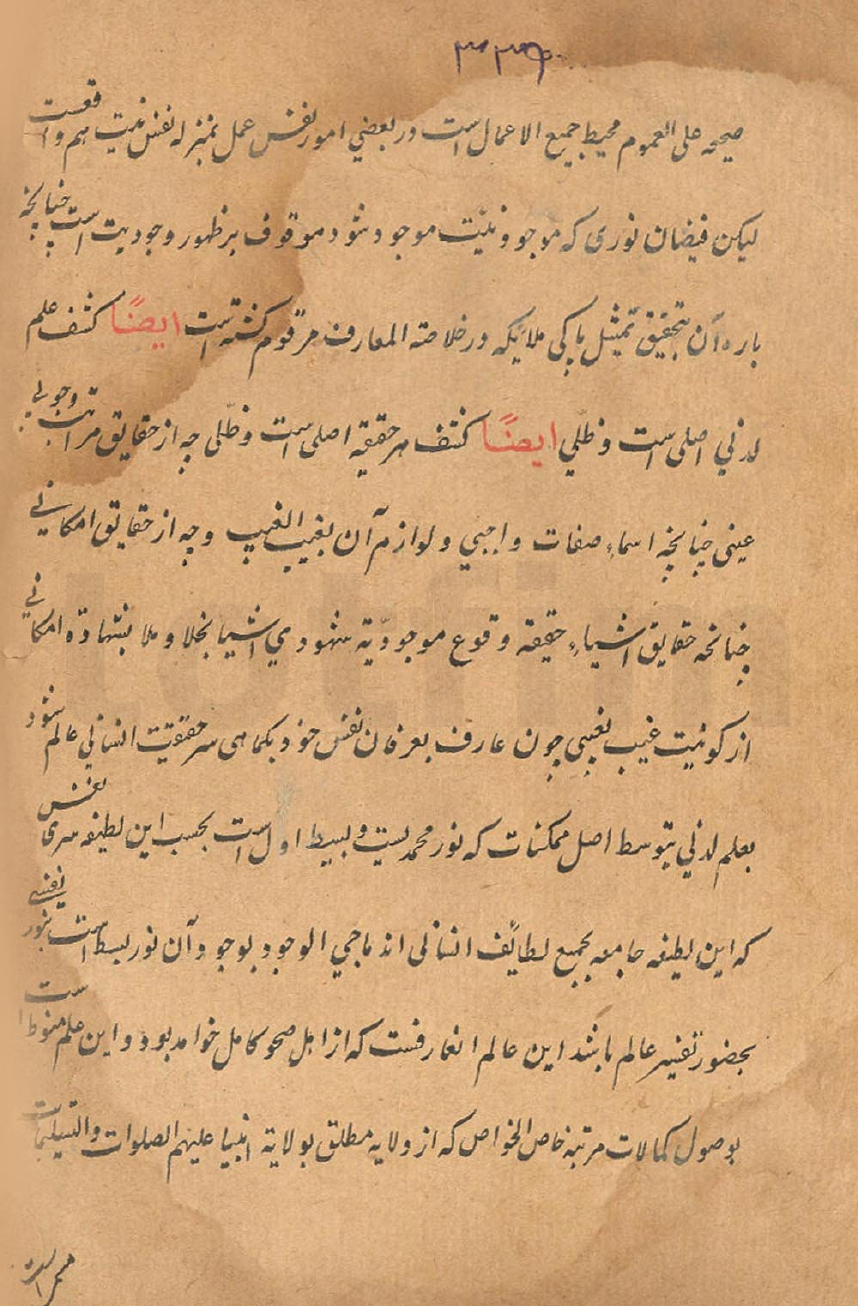 ۳۳۶
صحیحه علی العموم محیط جمیع الاعمال است در بعضی امور نفس عمل بمنزله نفس نیت هم واقعست
لیکن فیضان نوری که موجود نیّت موجود شود موقوف بر ظهور وجودیت است چنانچه
باره آن بتحقیق تمثیل پاکی ملایکه در خلاصة المعارف مرقوم کشته است ایضاً کشف علم
لدنی اصلی است و ظلّی ایضاً کشف هر حقیقه اصلی است و ظلّی چه از حقایق مراتب وجوبی
عینی چنانچه اسماء صفات واجبی و لوازم آن بغیب الغیب و چه از حقایق امکانی
چنانچه حقایق اشیاء حقیقه وقوع موجودیّة شهودی اشیا بخلا و ملا بشهادة امکانی
از کونیت غیب بغیبی چون عارف بعرفان نفس خود بکماهی سر حقیقت انسانی عالم شود
بعلم لدنی بتوسط اصل ممکنات که نور محمدیست و بسیط اول است بحسب این لطیفه سری نفس
که این لطیفه جامعه بجمیع لطائف انسانی اند ماحی الوجود بوجود آن نور بسط است بنور نفسی
بحضور تفسیر عالم باشد این عالم انعارفست که از اهل صحو کامل خواهد بود و این علم منوط است
بوصول کمالات مرتبه خاص الخواص که از ولایه مطلق بولایة انبیا علیهم الصلوات و التسلیمات